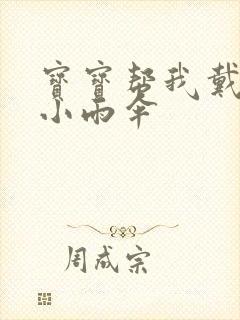 寶寶帮我戴
小雨伞
周成宗